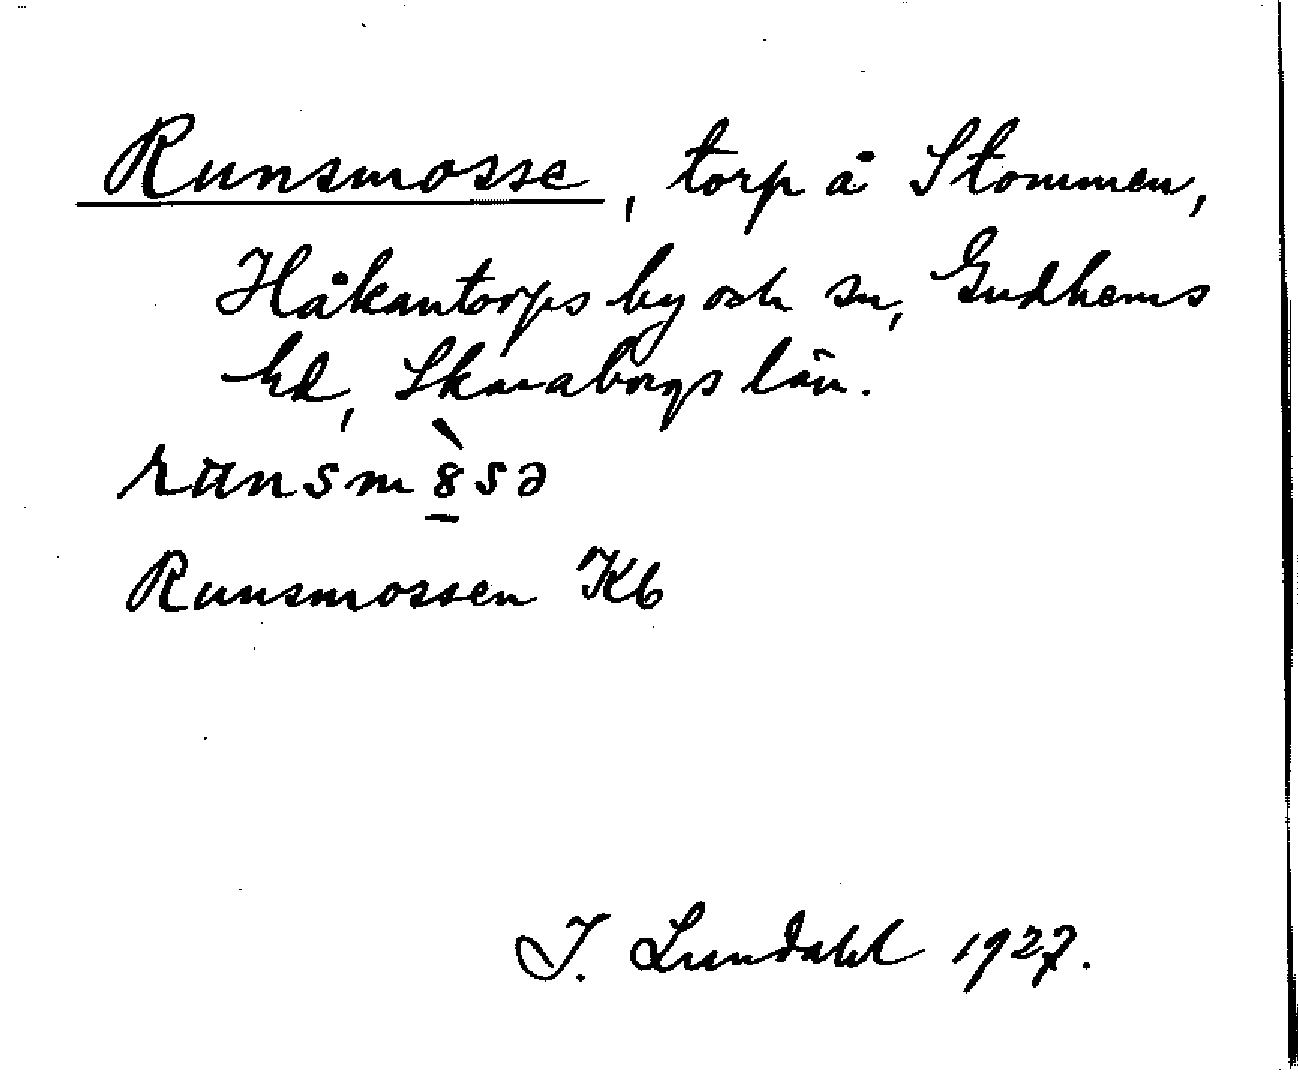 Runsmosse, torp å Stommen,
Håkantorps by och sn, Gudhems
hd, Skaraborgs län.
Runsmossen Kb
I. Lundahl 1927.